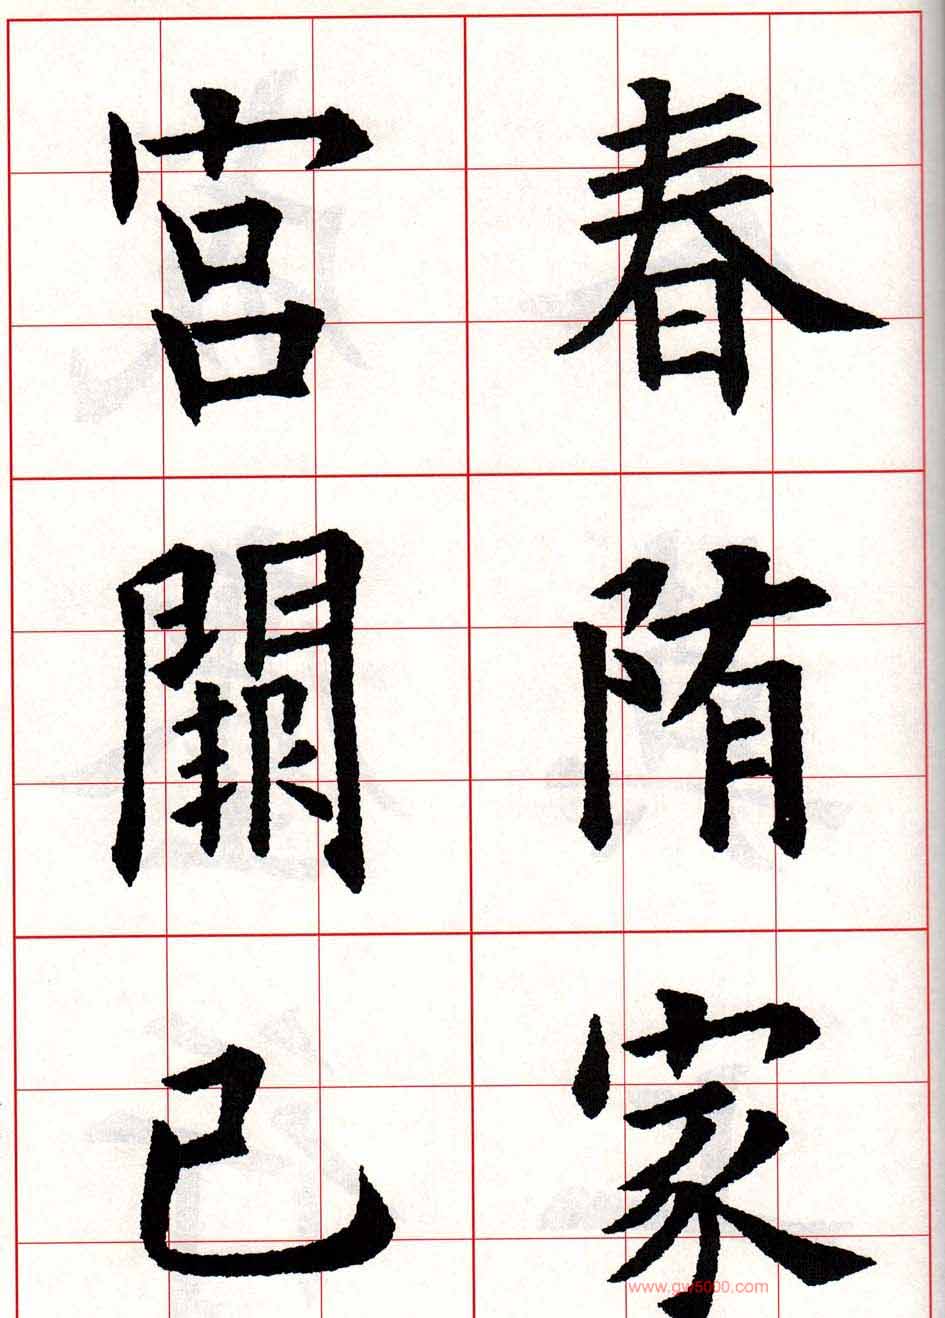 春陏家
宫闕已
www.gw5000.com